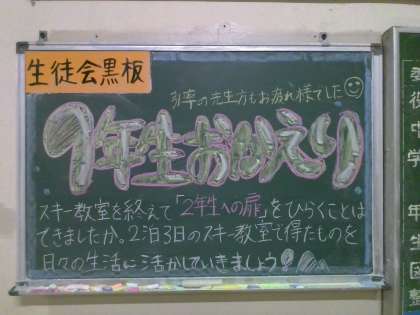 生徒会黒板
引率の先生方もお疲れ様でした
1年生おかえり
スキー教室を終えて「2年生への扉」をひらくことは
できましたか。2泊3日のスキー教室で得たものを
日々の生活に活かしていきましょう!